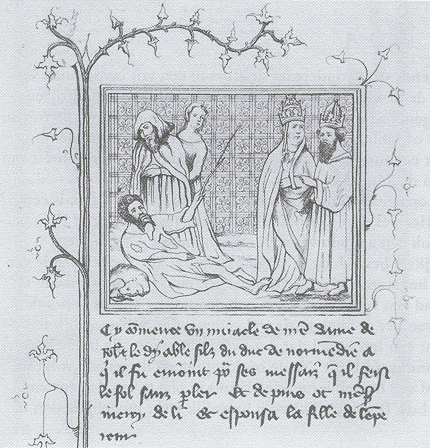 Cy ōmence un miracle de nr̄e dame de
rob't le dyable filz du duc de normēdie a
q̄ il fu enioint po' ses meffaiz q̄ il feist
le fol sanz p̱ler Et depuis ot nr̄e s'
mercy de li Et espousa la fille de lēpe
reur